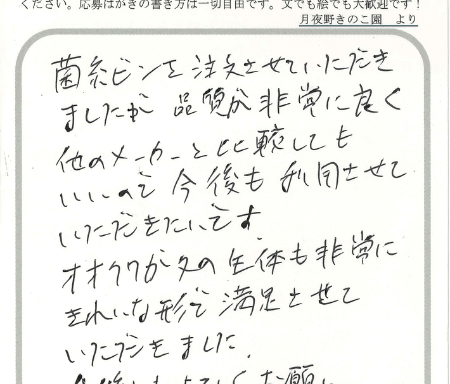 ください。応募はがきの書き方は一切自由です。文でも絵でも大歓迎です！
月夜野きのこ園　より
菌糸ビンを注文させていただき
ましたが 品質が非常に良く
他のメーカーと比較しても
いいので 今後も利用させて
いただきたいです。
オオクワガタの生体も非常に
きれいな形で満足させて
いただきました。